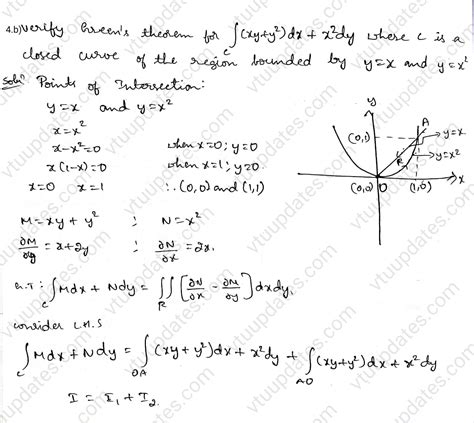 4.b) Verify Green's theorem for ∫_C (xy+y²)dx + x²dy where C is a
closed curve of the region bounded by y=x and y=x²
Soln: Points of Intersection:
y=x and y=x²
x=x²
x-x²=0 when x=0; y=0
x(1-x)=0 when x=1; y=0
x=0 x=1 ∴ (0,0) and (1,1)
y
A
(0,1)
y=x
y=x²
R
(0,0) 0 (1,0) x
M=xy+y² ; N=x²
∂M/∂y = x+2y ; ∂N/∂x = 2x.
G.T: ∫_C Mdx + Ndy = ∬_R [∂N/∂x - ∂M/∂y] dxdy.
consider L.H.S
∫_C Mdx + Ndy = ∫_OA (xy+y²)dx + x²dy + ∫_AO (xy+y²)dx + x²dy
I = I₁ + I₂
vtuupdates.com